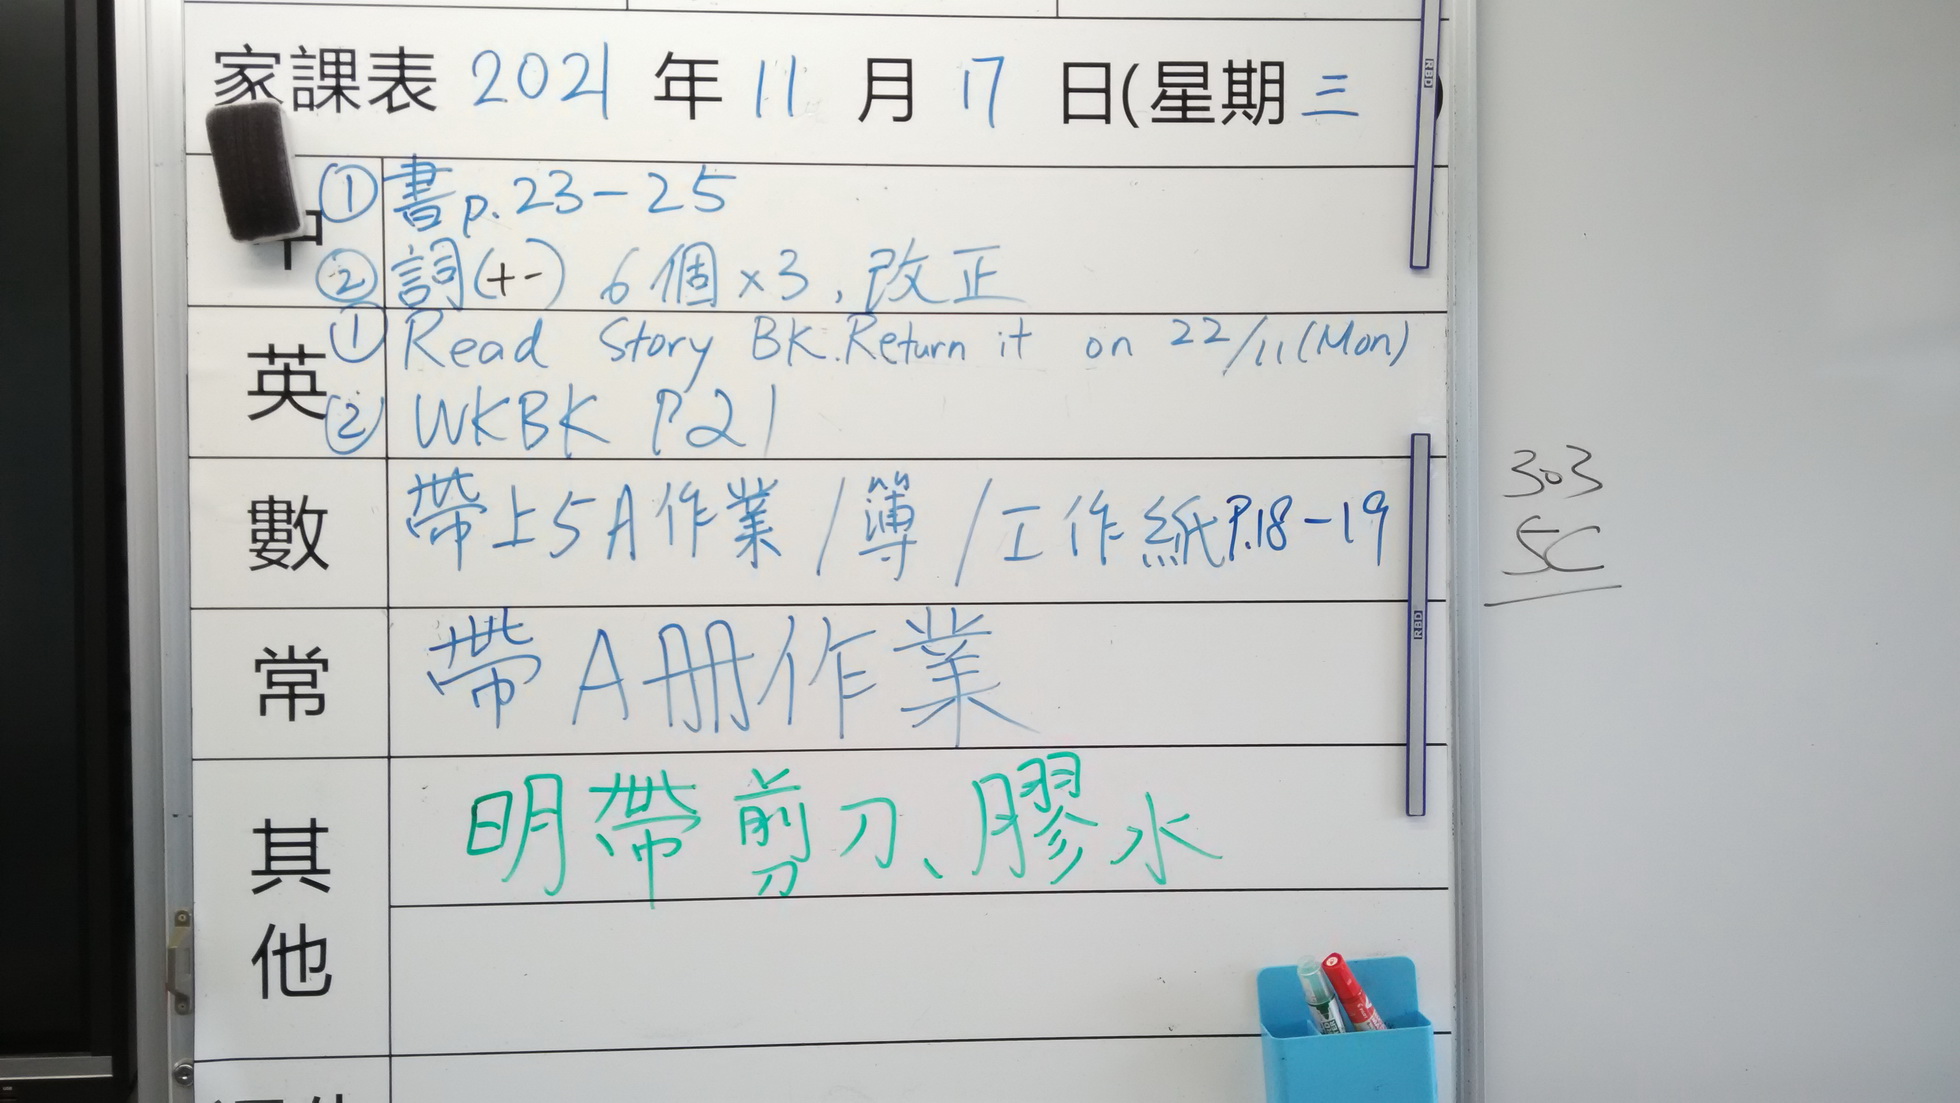 家課表 2021 年 11 月 17 日(星期三)
中 ① 書p.23-25
② 詞(十一) 6個×3,改正
英 ① Read Story BK. Return it on 22/11(Mon)
② WKBK P21
數 帶上5A作業/簿/工作紙P.18-19
常 帶A册作業
其他 明帶剪刀、膠水
303
5C
RBD
RBD